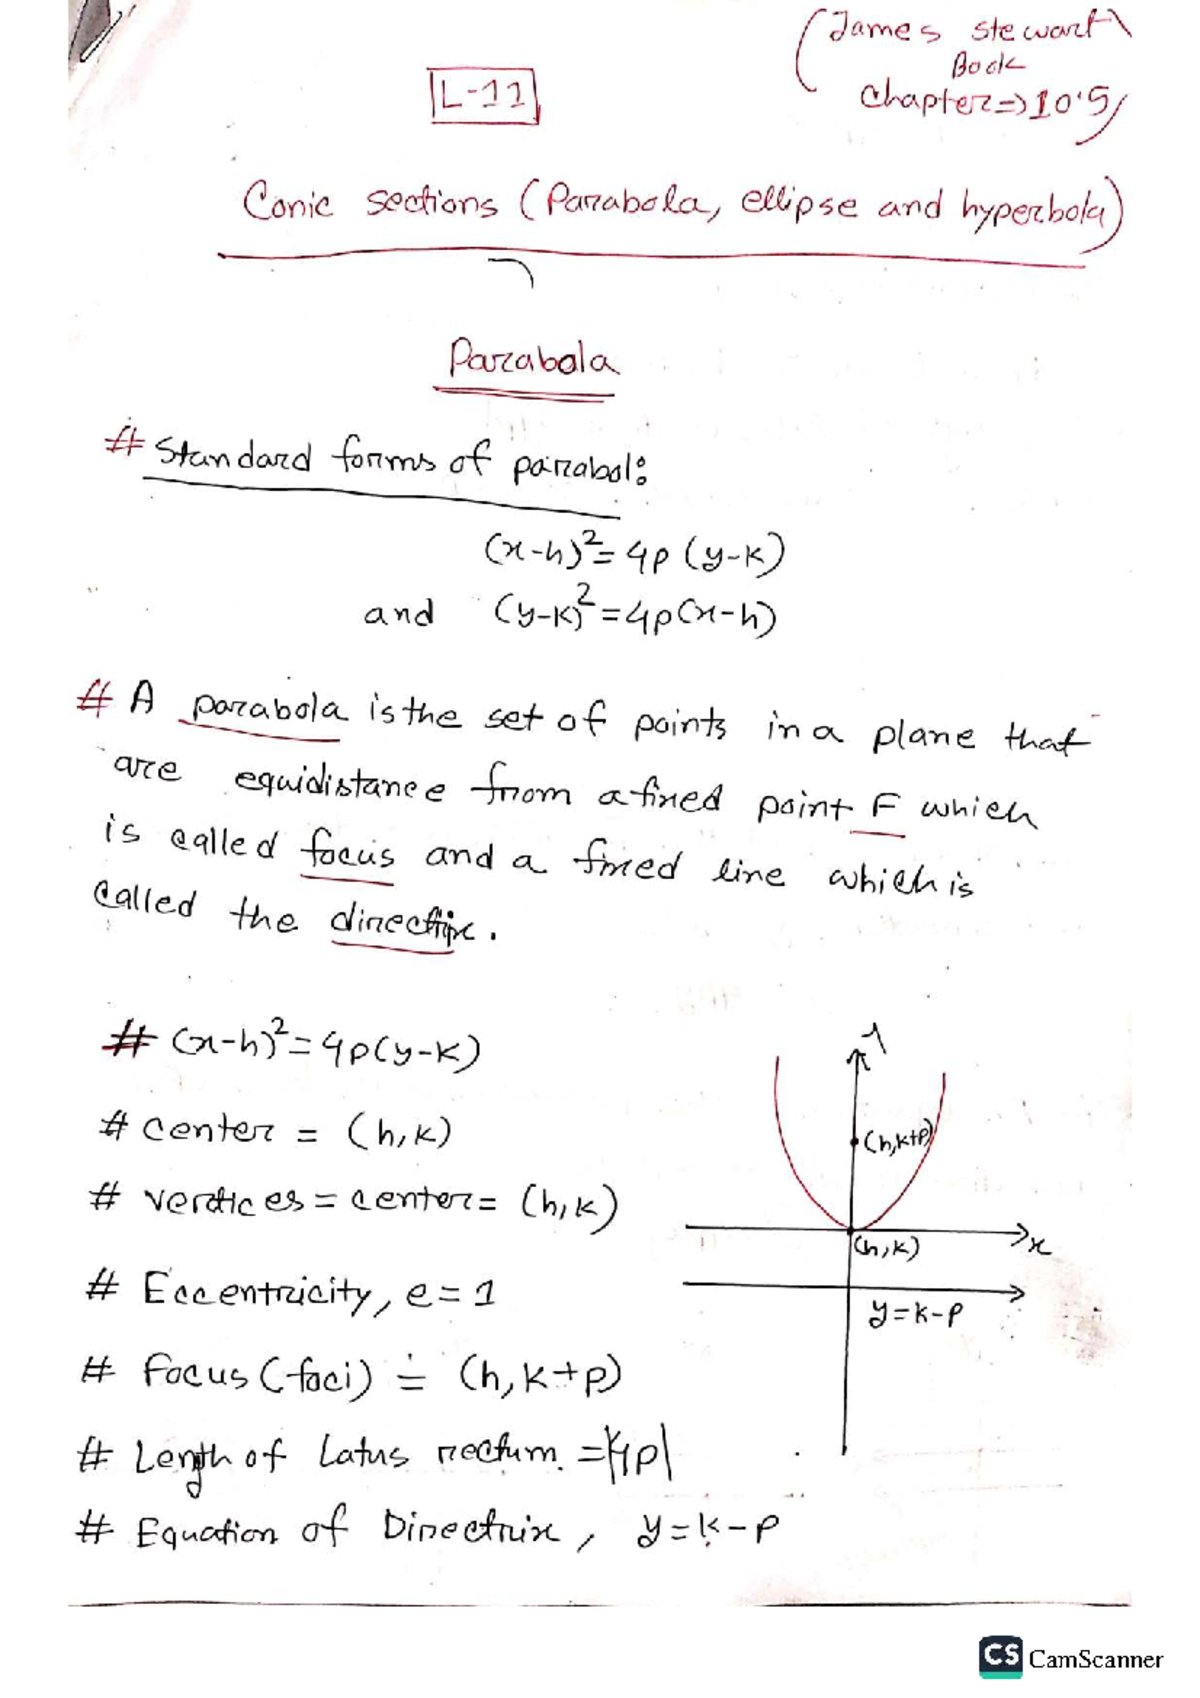 (James Stewart
Book
Chapter=>10.5)
L-11
Conic sections (Parabola, ellipse and hyperbola)
Parabola
# Standard forms of parabol:
(x-h)²=4p(y-k)
and (y-k)²=4p(x-h)
# A parabola is the set of points in a plane that
are equidistance from a fixed point F which
is called focus and a fixed line which is
called the directrix.
# (x-h)²=4p(y-k)
# center = (h,k)
# vertices = center = (h,k)
# Eccentricity, e=1
# Focus (foci) = (h, k+p)
# Length of Latus rectum = |4p|
# Equation of Directrix, y=k-p
(h,k+p)
(h,k)
x
y=k-p
CS CamScanner